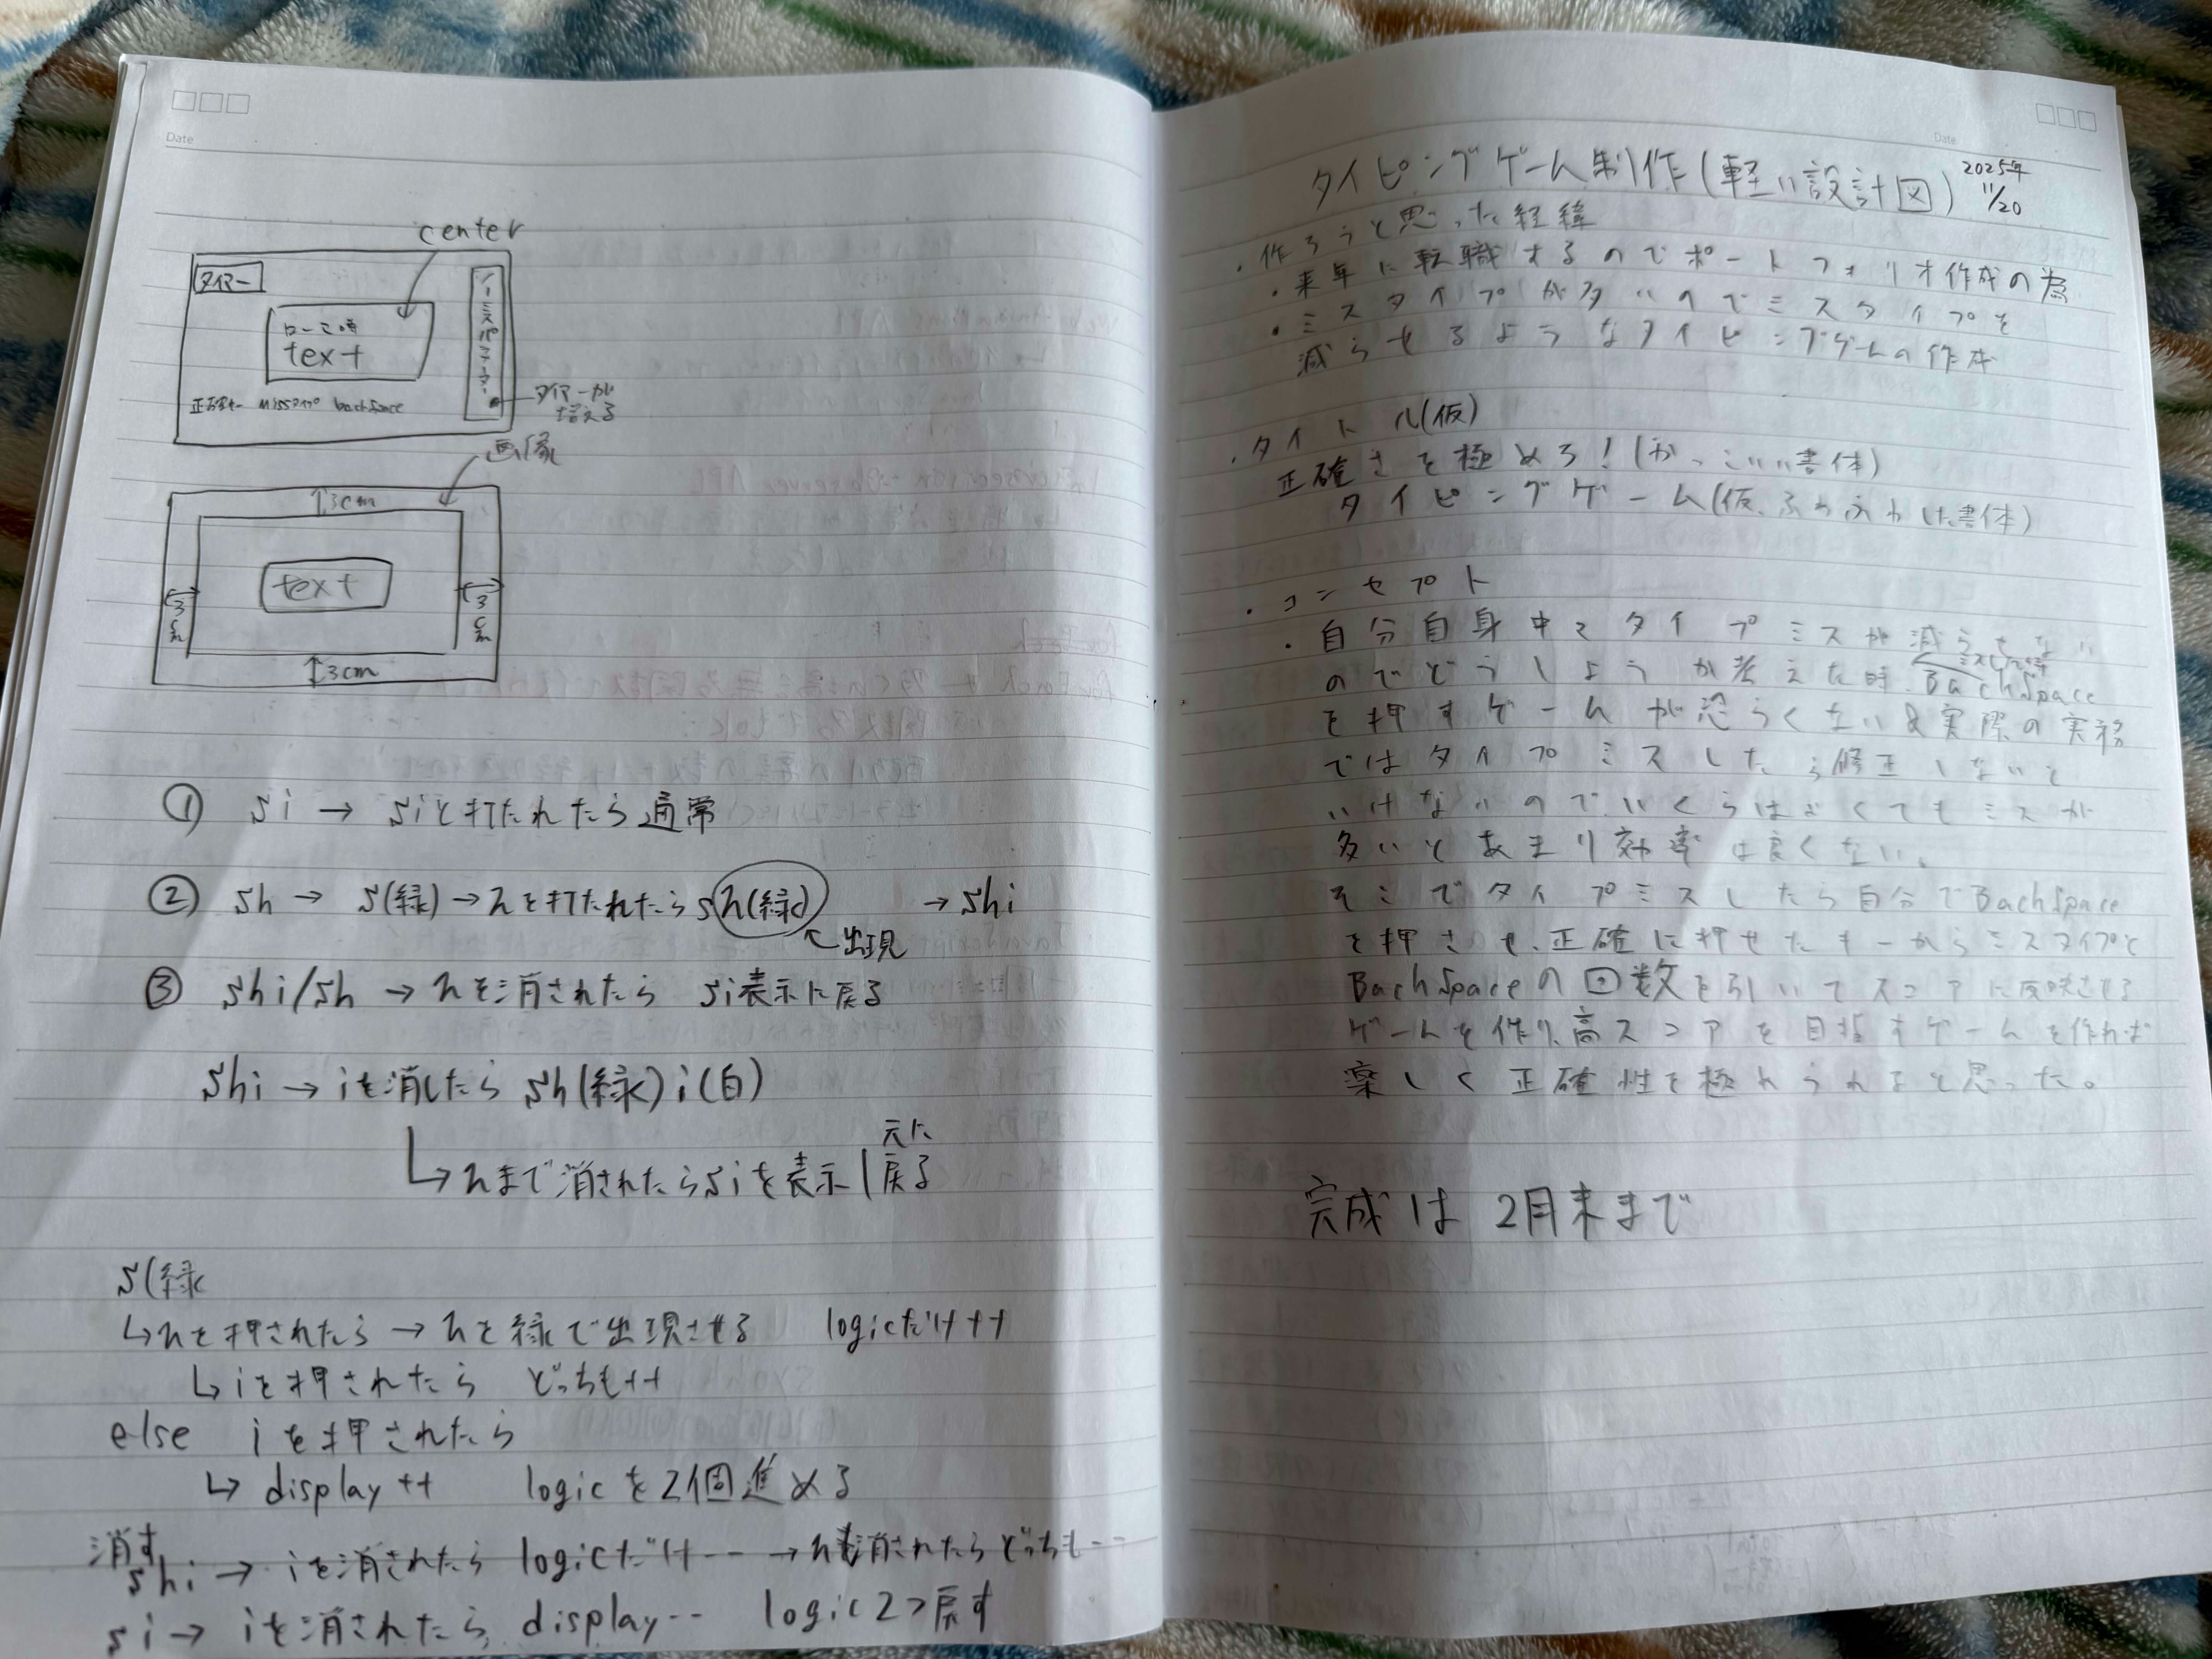 Date
center
タイマー
ローマ字
text
ノーミスバーメーター
正確キー missタイプ backspace
タイマーが
増える
画像
3cm
text
3cm
3cm
3cm
① si → siと打たれたら通常
② sh → s(緑) → hを打たれたら sh(緑) → shi
出現
③ shi/sh → hを消されたら si表示に戻る
shi → iを消したら sh(緑) i(白)
↳ hまで消されたらsiを表示|元に戻る
s(緑
↳hを押されたら → hを緑で出現させる logicだけ++
↳iを押されたら どっちも++
else iを押されたら
↳ display++ logicを2個進める
消す
shi → iを消されたら logicだけ-- → hも消されたらどっちも--
si → iを消されたら display-- logic2つ戻す
Date
タイピングゲーム制作(軽い設計図) 2025年
11/20
・作ろうと思った経緯
・来年に転職するのでポートフォリオ作成の為
・ミスタイプが多いのでミスタイプを
減らせるようなタイピングゲームの作成
・タイトル(仮)
正確さを極めろ!(かっこいい書体)
タイピングゲーム(仮、ふわふわした書体)
・コンセプト
・自分自身中々タイプミスが減らせない
のでどうしようか考えた時、ミスした時BachSpace
を押すゲームが恐らくない&実際の実務
ではタイプミスしたら修正しないと
いけないのでいくらはよくてもミスが
多いとあまり効率は良くない。
そこでタイプミスしたら自分でBachSpace
を押させ、正確に押せたキーからミスタイプと
BachSpaceの回数を引いてスコアに反映させる
ゲームを作り、高スコアを目指すゲームを作れば
楽しく正確性を極められると思った。
完成は 2月末まで